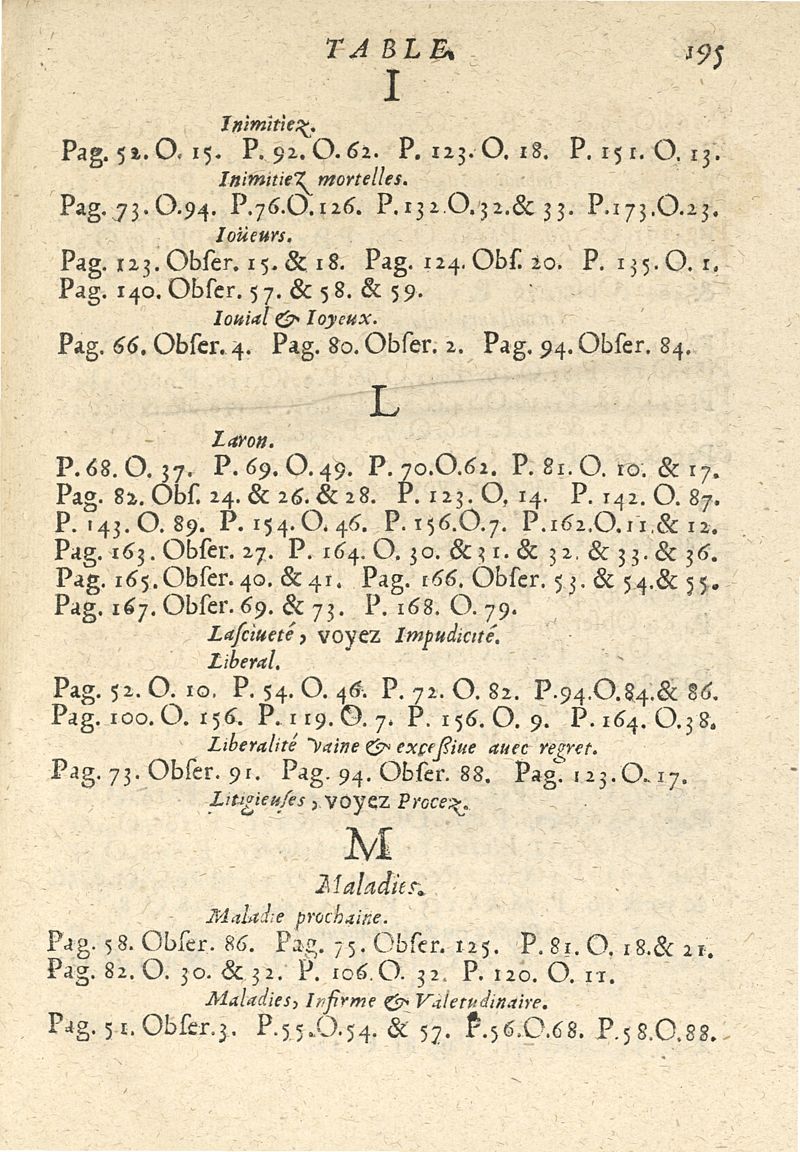 TABLE. 195
I
Inimitiez.
Pag. 52. O. 15. P. 92. O. 62. P. 123. O. 18. P. 151. O. 13.
Inimitiez mortelles.
Pag. 73. O.94. P.76.O.126. P.132.O.32.& 33. P.173.O.23.
Ioüeurs.
Pag. 123. Obſer. 15. & 18. Pag. 124. Obſ. 20. P. 135. O. 1.
Pag. 140. Obſer. 57. & 58. & 59.
Iouial & Ioyeux.
Pag. 66. Obſer. 4. Pag. 80. Obſer. 2. Pag. 94. Obſer. 84.
L
Laron.
P. 68. O. 37. P. 69. O. 49. P. 70.O.62. P. 81. O. 10. & 17.
Pag. 82. Obſ. 24. & 26. & 28. P. 123. O. 14. P. 142. O. 87.
P. 143. O. 89. P. 154. O. 46. P. 156.O.7. P.162.O.11.& 12.
Pag. 163. Obſer. 27. P. 164. O. 30. & 31. & 32. & 33. & 36.
Pag. 165. Obſer. 40. & 41. Pag. 166. Obſer. 53. & 54.& 55.
Pag. 167. Obſer. 69. & 73. P. 168. O. 79.
Laſciueté, voyez Impudicité.
Liberal.
Pag. 52. O. 10. P. 54. O. 46. P. 72. O. 82. P.94.O.84.& 86.
Pag. 100. O. 156. P. 119. O. 7. P. 156. O. 9. P. 164. O.38.
Liberalité vaine & exceßiue auec regret.
Pag. 73. Obſer. 91. Pag. 94. Obſer. 88. Pag. 123. O. 17.
Litigieuſes, voyez Procez.
M
Maladies.
Maladie prochaine.
Pag. 58. Obſer. 86. Pag. 75. Obſer. 125. P. 81. O. 18.& 21.
Pag. 82. O. 30. & 32. P. 106. O. 32. P. 120. O. 11.
Maladies, Infirme & Valetudinaire.
Pag. 51. Obſer.3. P.55.O.54. & 57. P.56.O.68. P.58.O.88.